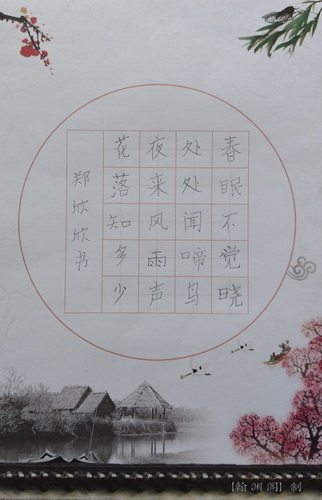 春眠不觉晓
处处闻啼鸟
夜来风雨声
花落知多少
郑欣欣书
【翰渊阁】制